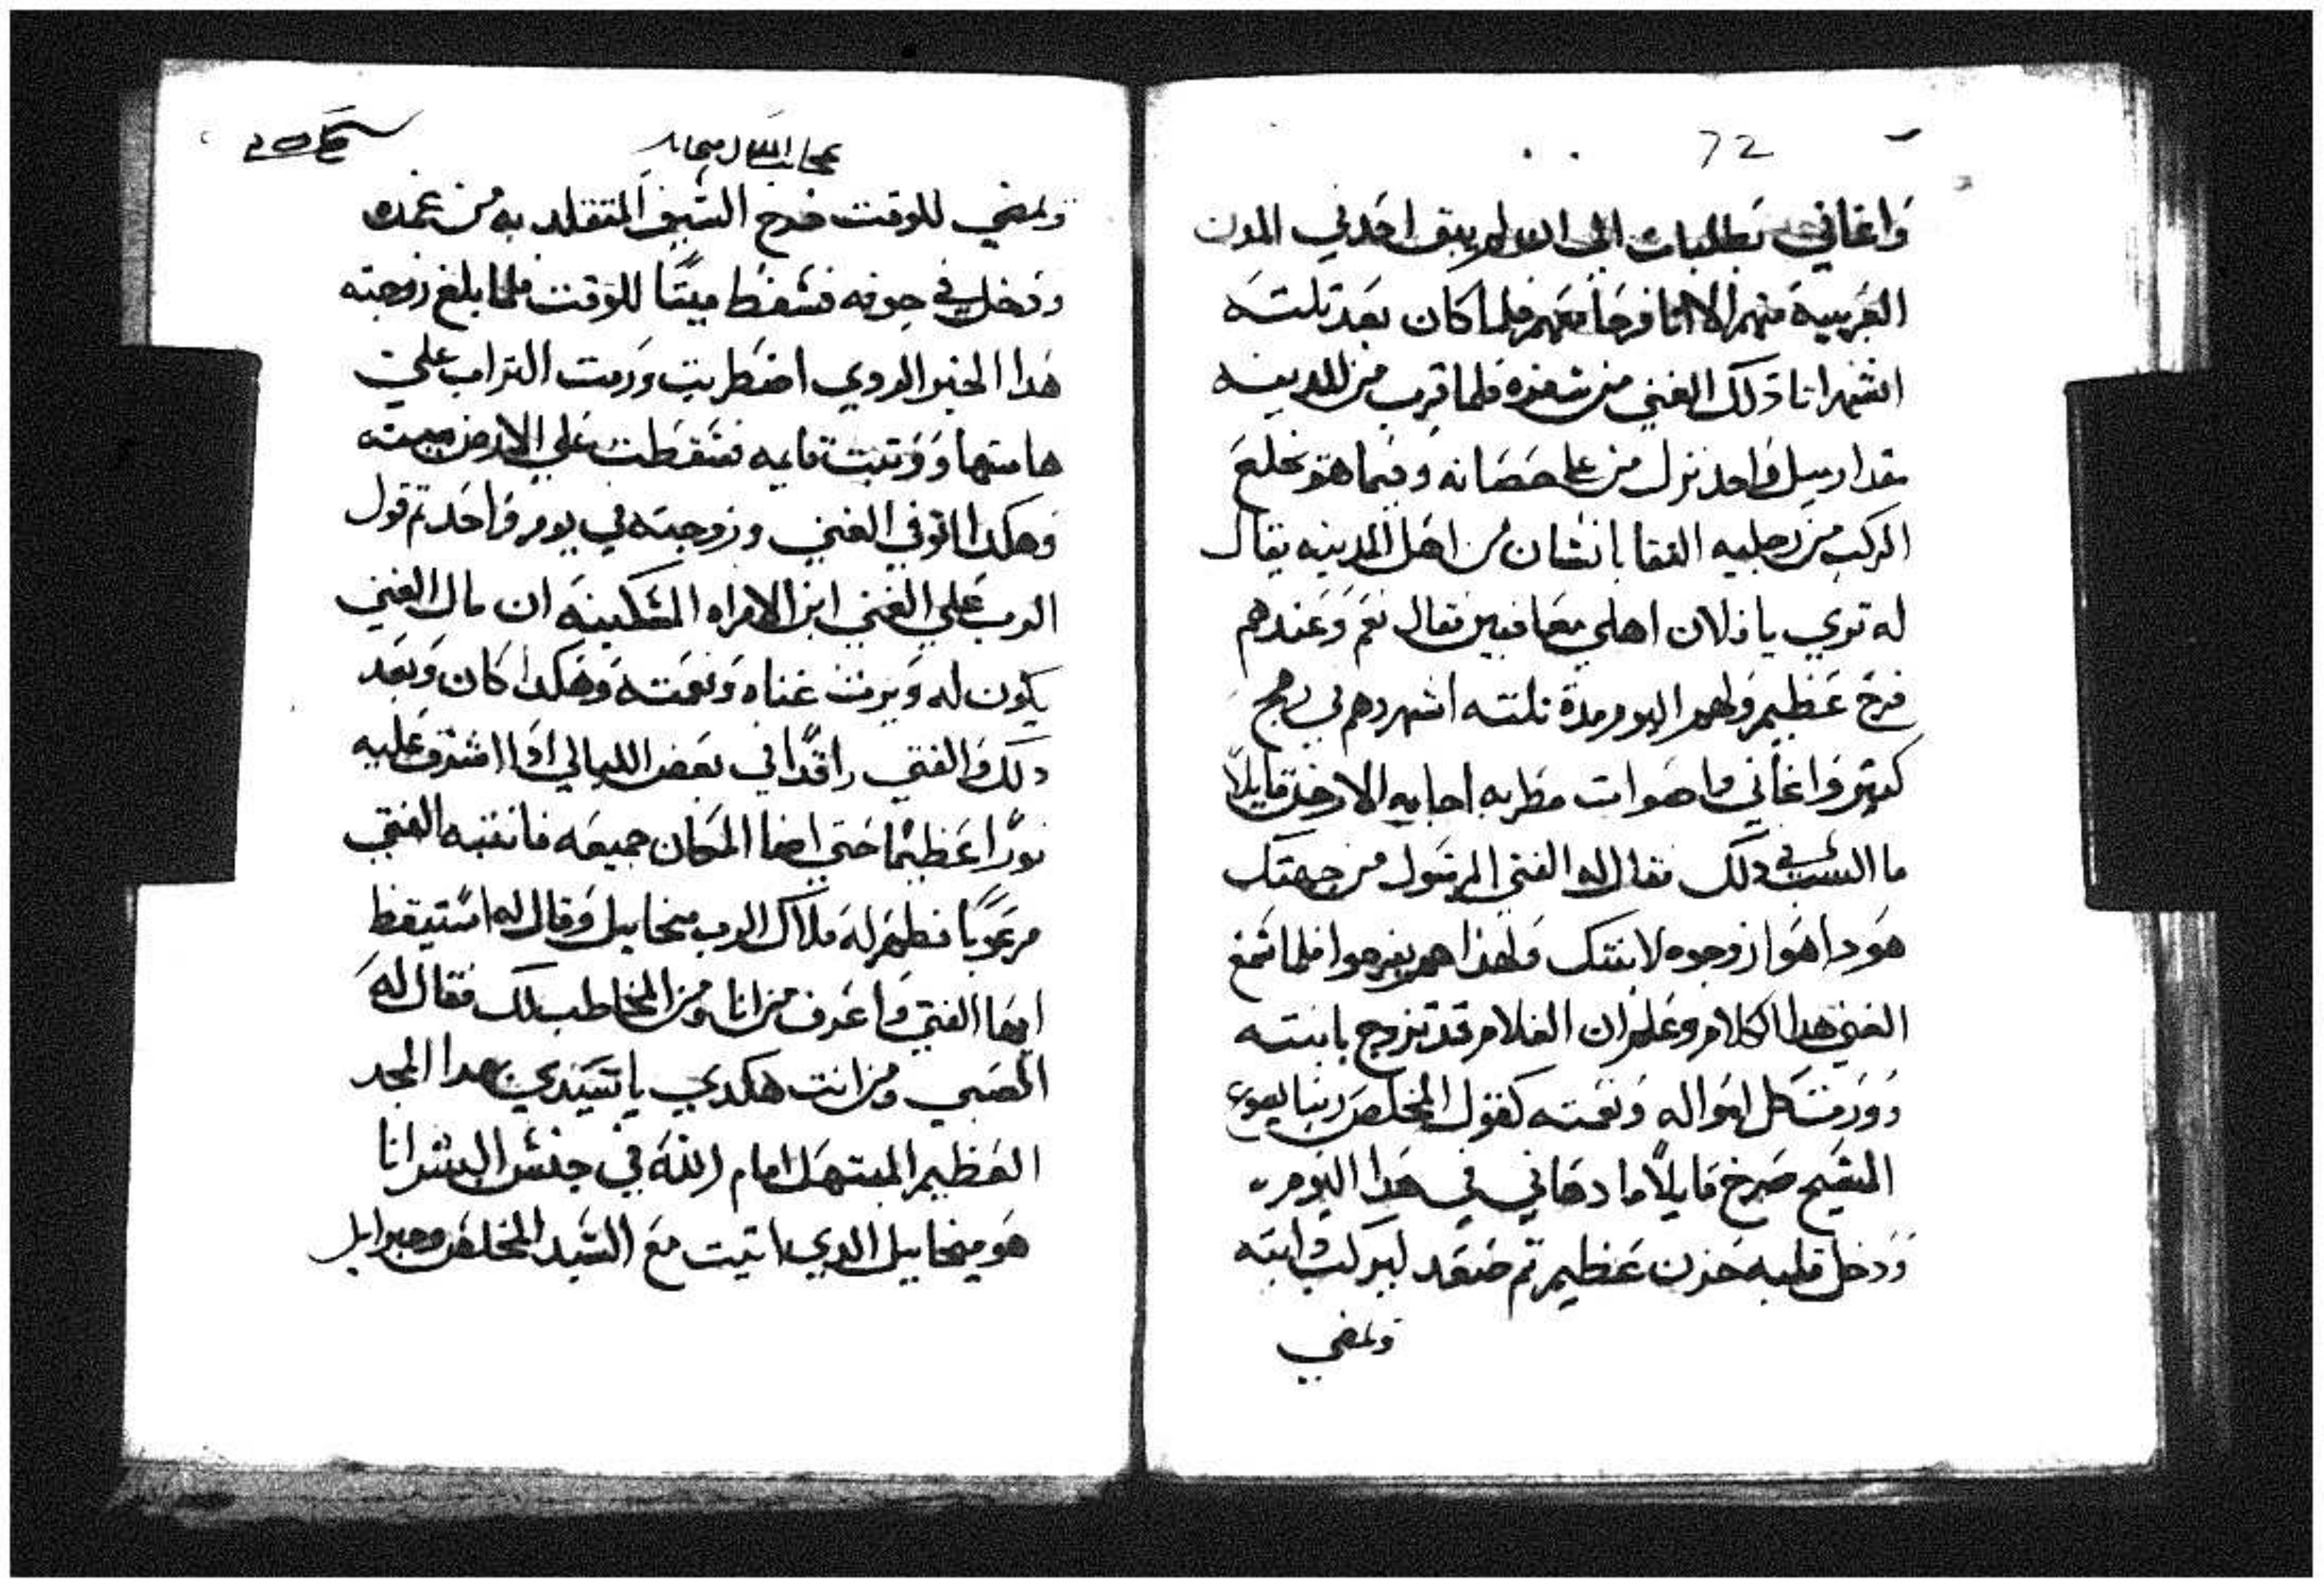 72
واغاني وطلبات الي الله لم يبق احد في المدن
القريبة منهم الا اتا فرحا معهم فلما كان بعد تلته
اشهر اتا دلك الغني من سفره فلما قرب من المدينه
مقدار ميل واحد نزل من علي حصانه وفيما هو يخلع
الركب من رجليه التقا بانسان من اهل المدينه فقال
له تري يا فلان اهلي معافيين فقال نعم وعندهم
فرح عظيم ولهم اليوم مدة تلته اشهر وهم في رهج
كتير واغاني واصوات مطربه اجابه الاخر قايلا
ما السبب في دلك فقال له الفتي المرسول من جهتك
هودا هوا زوجوه لابنتك ولهذا هم يفرحوا فلما سمع
الغني هدا الكلام وعلم ان الغلام قد تزوج بابنته
وورت كل امواله ونعمته كقول المخلص ربنا يسوع
المسيح صرخ قايلا ما دهاني في هدا اليوم
ودخل قلبه حزن عظيم تم صعد ليركب دابته
ولمضي
عجايب الملاك ميخاييل
ولمضي للوقت خرج السيف المتقلد به من غمده
ودخل في جوفه فسقط ميتا للوقت فلما بلغ زوجته
هدا الخبر الردي اضطربت ورمت التراب علي
هامتها ووتبت قايمه فسقطت علي الارض ميته
وهكدا توفي الغني وزوجته في يوم واحد تم قول
الرب علي الغني ابن الامراه المسكينه ان مال الغني
يكون له ويرت غناه ونعمته وهكدا كان وبعد
دلك والفتي راقدا في بعض الليالي ادا اشرق عليه
نورا عظيما حتي اضا المكان جميعه فانتبه الفتي
مرعوبا فظهر له ملاك الرب ميخاييل وقال له استيقظ
ايها الفتي واعرف من انا ومن المخاطب لك فقال له
الصبي ومن انت هكدي يا سيدي بهدا المجد
العظيم المبتهل امام الله في جنس البشر انا
هو ميخاييل الدي اتيت مع السيد المخلص وجبراييل